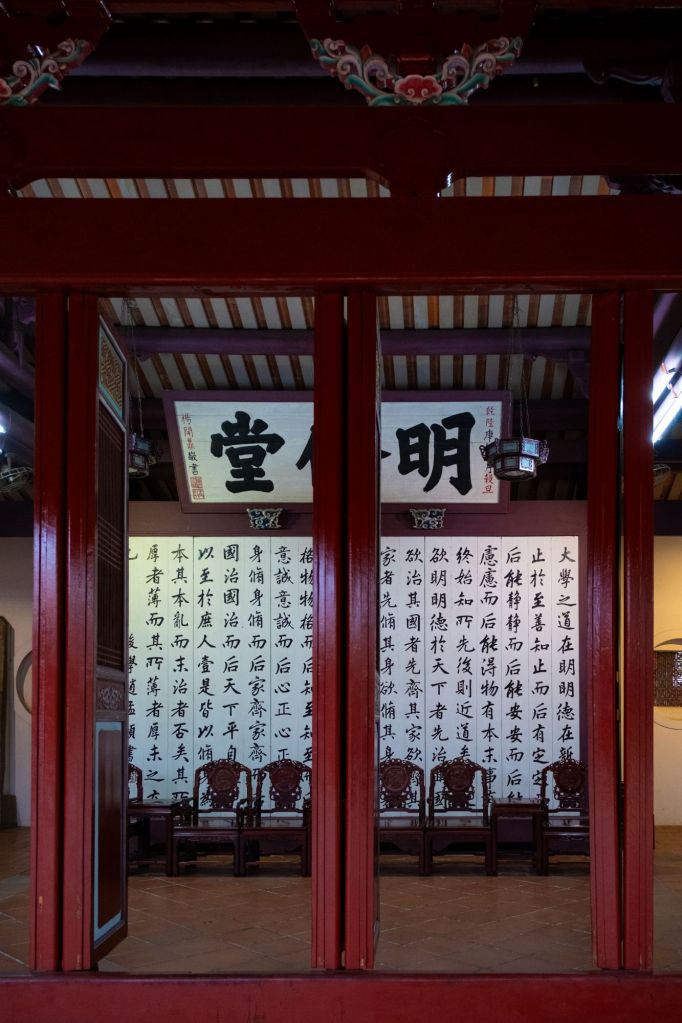 明堂
乾隆庚月穀旦
楊開鼎敬書
大學之道在明明德在新
止於至善知止而后有定
后能靜靜而后能安安而后
慮慮而后能得物有本末事
終始知所先後則近道矣
欲明明德於天下者先治
欲治其國者先齊其家欲
家者先脩其身欲脩其
格物物格而后知至知至
意誠意誠而后心正心正
身脩身脩而后家齊家齊
國治國治而后天下平自
以至於庶人壹是皆以脩
本其本亂而末治者否矣其所
厚者薄而其所薄者厚未之
後學趙孟頫書